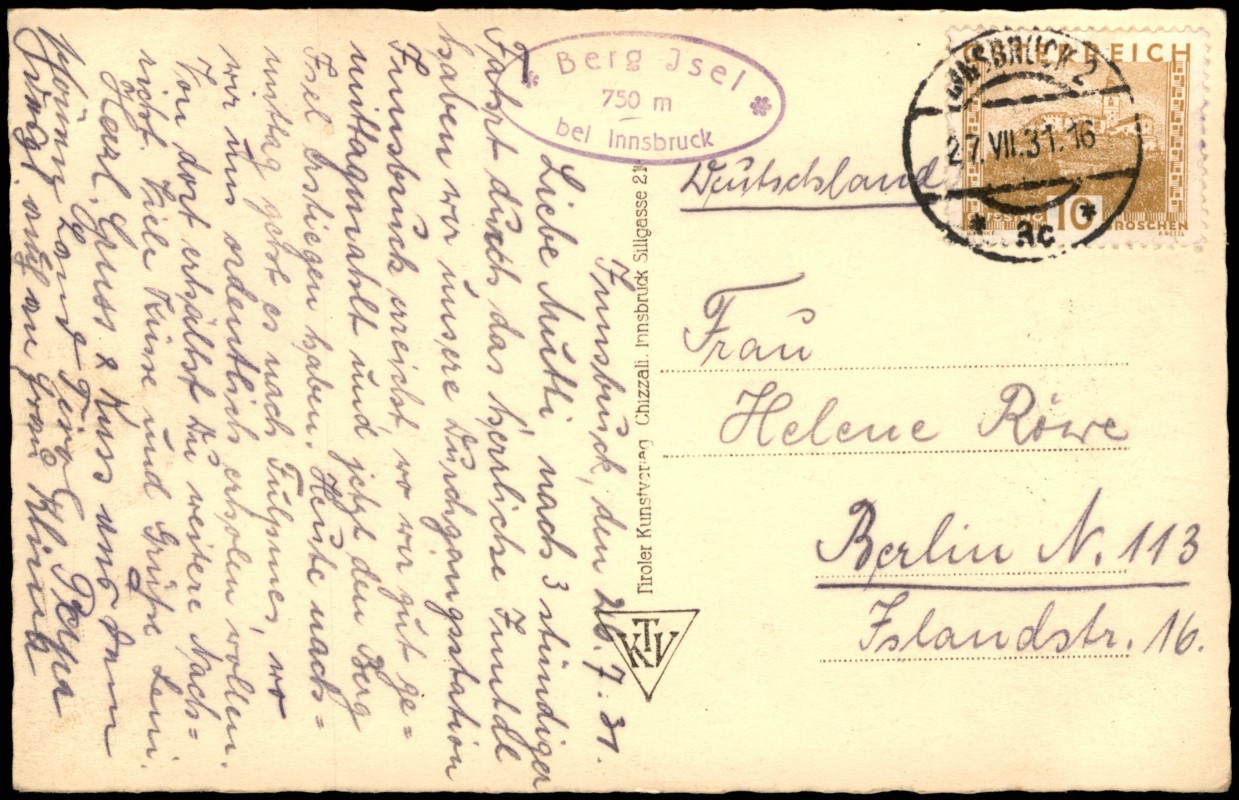 Innsbruck, den 26.7.31.
Liebe Mutti, nach 3 stündiger
Fahrt durch das herrliche Inntal
haben wir unsere Durchgangsstation
Innsbruck erreicht wo wir gut ge=
mittagmahlt und jetzt den Berg
Isel erstiegen haben. Heute nach=
mittag geht es nach Fulpmes, wo
wir uns ordentlich erholen wollen.
Von dort erhältst Du weitere Nach=
richt. Viele Küsse und Grüße Leni.
Herzl. Gruss & Kuss aus dem
schönen Land Tirol
auch an Frau
Berg Isel
750 m
bei Innsbruck
Tiroler Kunstverlag Chizzali. Innsbruck Sillgasse 21
KTV
ÖSTERREICH
10
GROSCHEN
INNSBRUCK 2
27.VII.31.16
* 3c *
Deutschland
Frau
Helene Röwe
Berlin N. 113
Islandstr. 16.